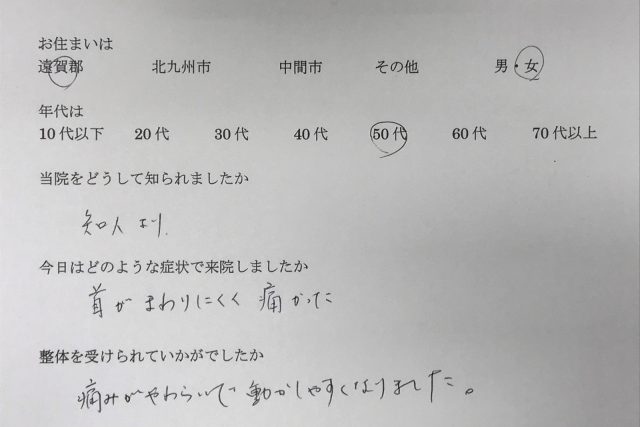 お住まいは
遠賀郡 北九州市 中間市 その他 男・女
年代は
10代以下 20代 30代 40代 50代 60代 70代以上
当院をどうして知られましたか
知人より.
今日はどのような症状で来院しましたか
首がまわりにくく痛かった
整体を受けられていかがでしたか
痛みがやわらいで動かしやすくなりました。